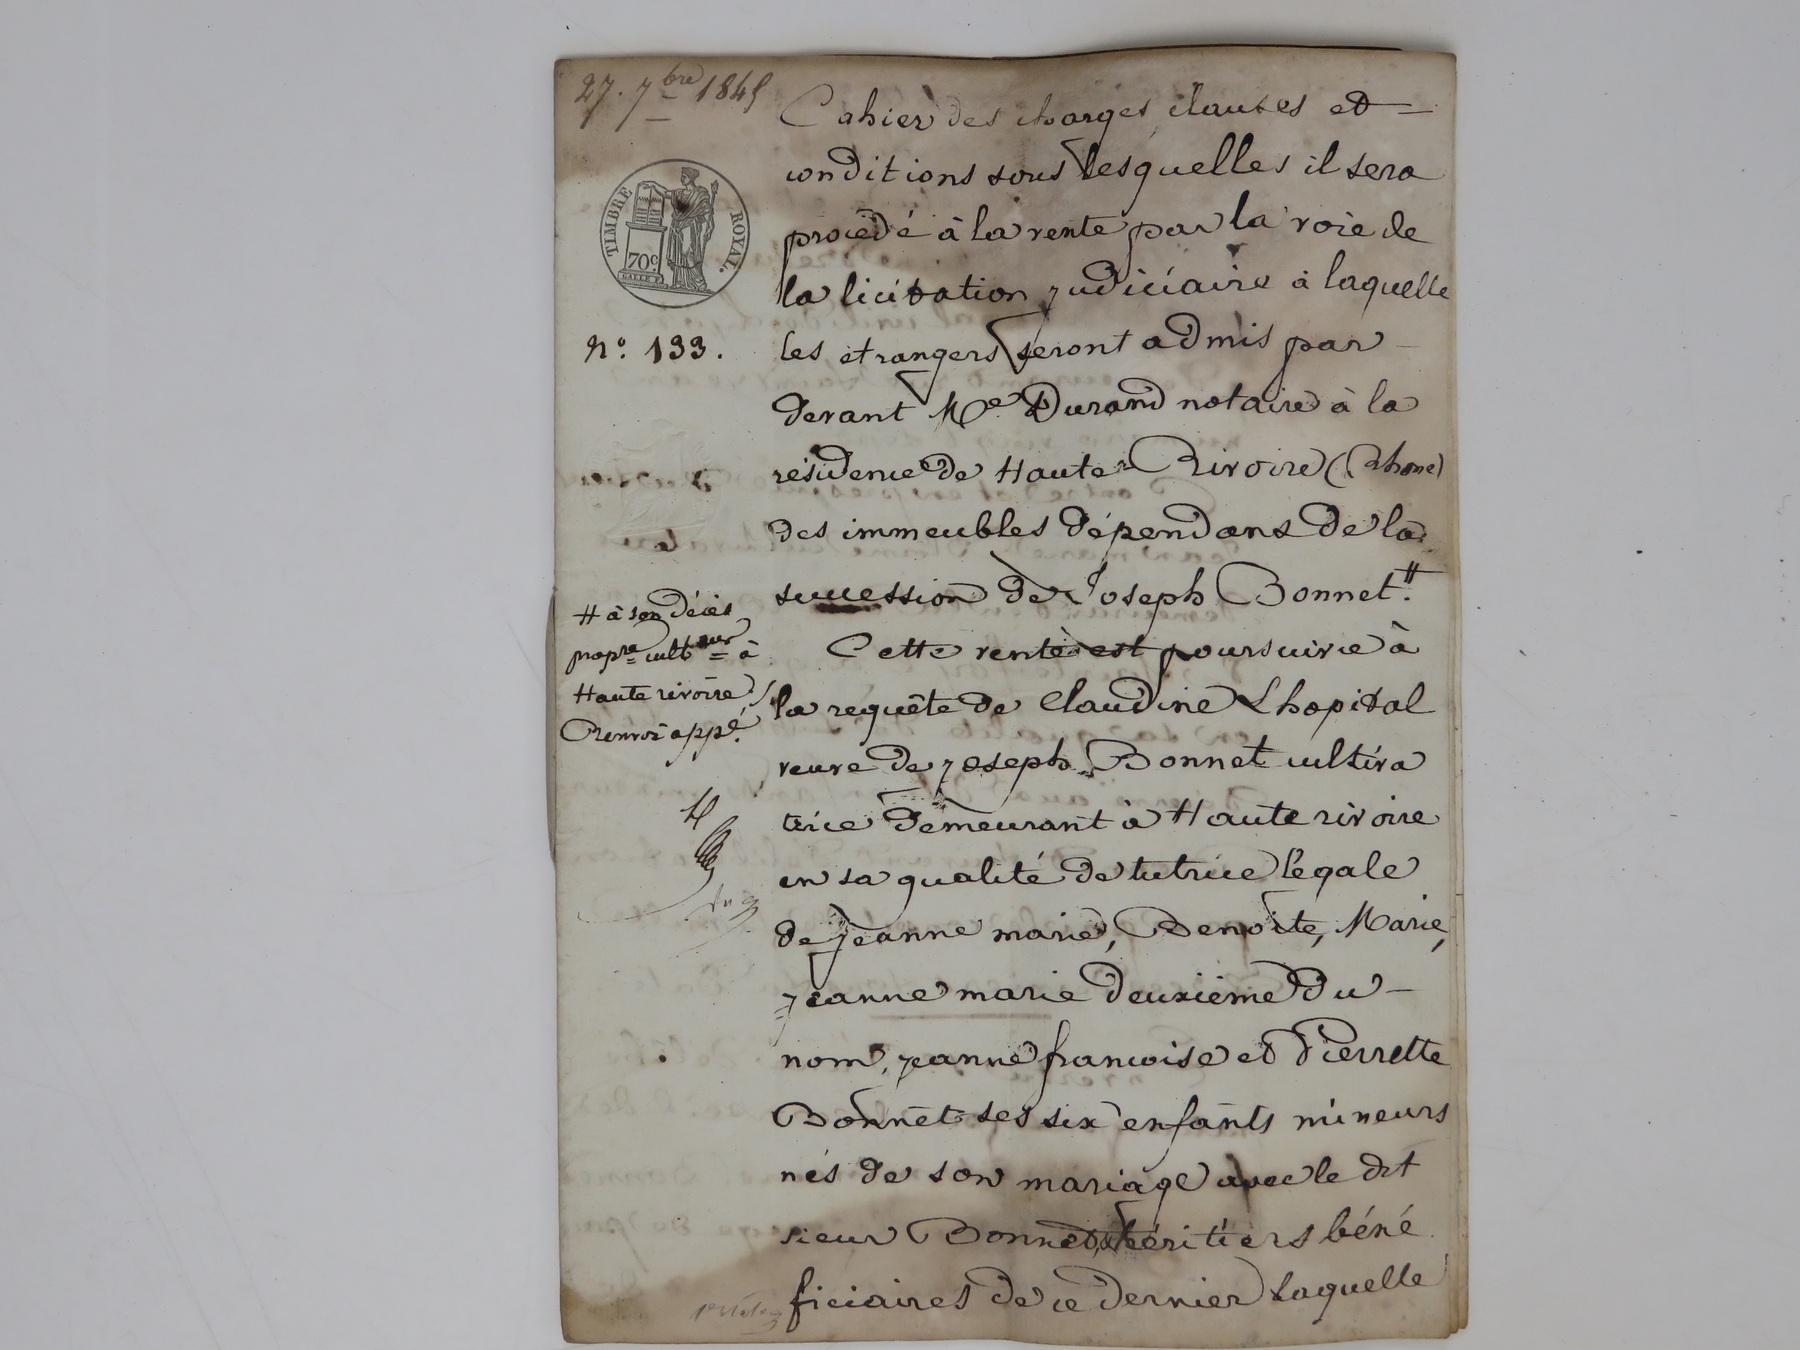 27. 7bre 1845
TIMBRE ROYAL.
70c.
N° 133.
Cahier des charges clauses et
conditions sous lesquelles il sera
procédé à la vente par la voie de
la licitation judiciaire à laquelle
les etrangers seront admis par
devant Me Durand notaire à la
résidence de Haute-Rivoire (Rhone)
des immeubles dépendans de la
succession de Joseph Bonnet. #
# à son décès
propre cultteur à
Haute rivoire /
Renvoi appé.
Cette vente est poursuivie à
la requête de Claudine Lhopital
veuve de joseph Bonnet cultiva
trice demeurant à Haute rivoire
en sa qualité de tutrice légale
de jeanne marie, Benoite, Marie,
jeanne marie deuxième du
nom, jeanne francoise et Pierrette
Bonnet ses six enfants mineurs
nés de son mariage avec le dit
sieur Bonnet, héritiers béné
ficiaires de ce dernier laquelle